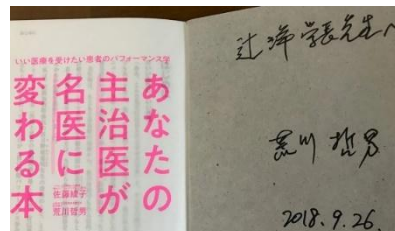 いい医療を受けたい患者のパフォーマンス学
あなたの
主治医が
名医に
変わる本
佐藤綾子
荒川哲男
辻 洋 学長先生へ
荒川 哲男
2018.9.26.